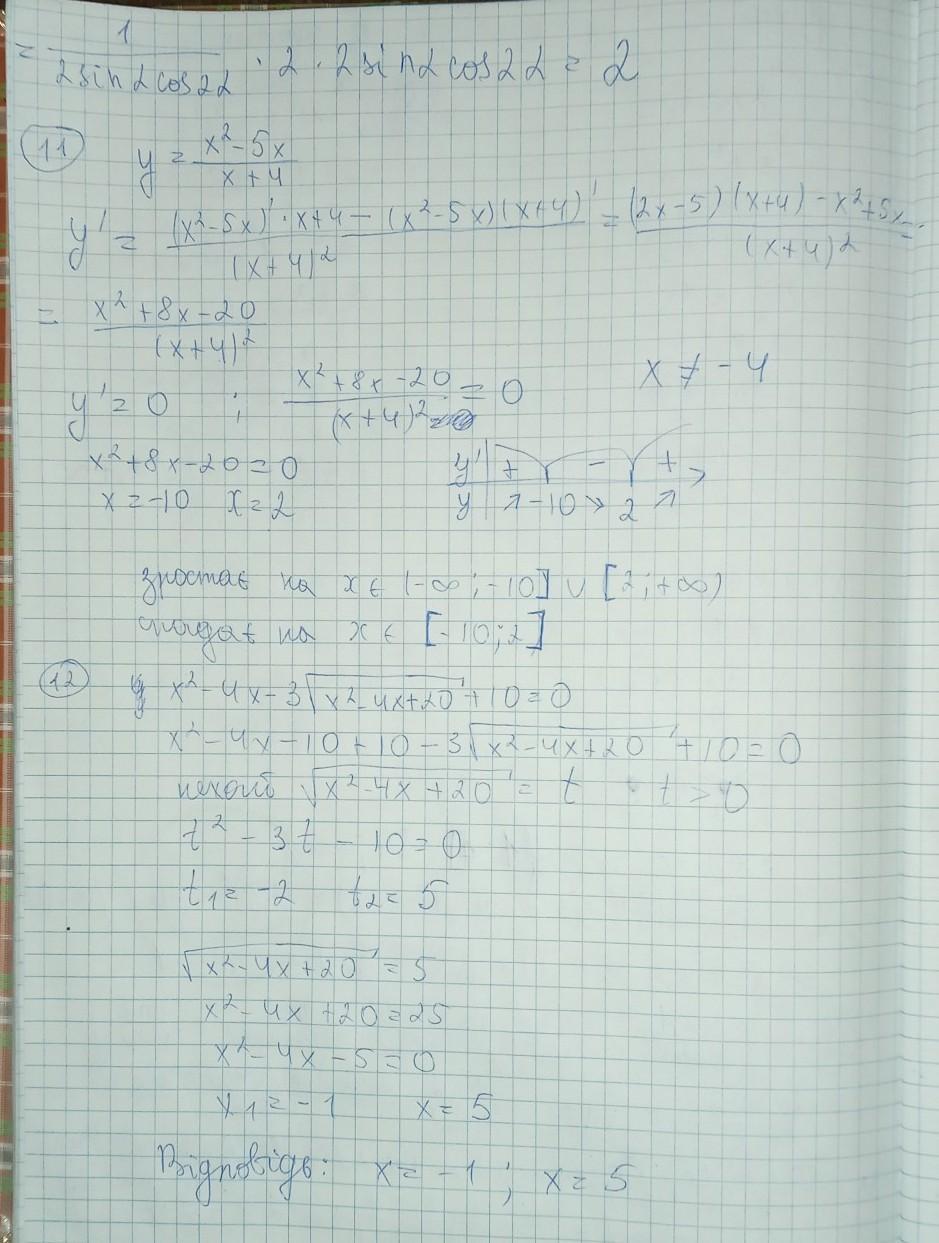 = 1/(2sinα cos2α) · 2 · 2sinα cos2α = 2
11 y = (x² - 5x)/(x + 4)
y' = ((x² - 5x)' · x + 4 - (x² - 5x)(x + 4)')/(x + 4)² = ((2x - 5)(x + 4) - x² + 5x)/(x + 4)² =
= (x² + 8x - 20)/(x + 4)²
y' = 0 ; (x² + 8x - 20)/(x + 4)² = 0 x ≠ -4
x² + 8x - 20 = 0 y' + - +
x = -10 x = 2 y ↗ -10 ↘ 2 ↗
зростає на x ∈ (-∞; -10] ∪ [2; +∞)
спадає на x ∈ [-10; 2]
12 x² - 4x - 3√(x² - 4x + 20) + 10 = 0
x² - 4x - 10 + 10 - 3√(x² - 4x + 20) + 10 = 0
нехай √(x² - 4x + 20) = t t > 0
t² - 3t - 10 = 0
t₁ = -2 t₂ = 5
√(x² - 4x + 20) = 5
x² - 4x + 20 = 25
x² - 4x - 5 = 0
x₁ = -1 x = 5
Відповідь: x = -1 ; x = 5